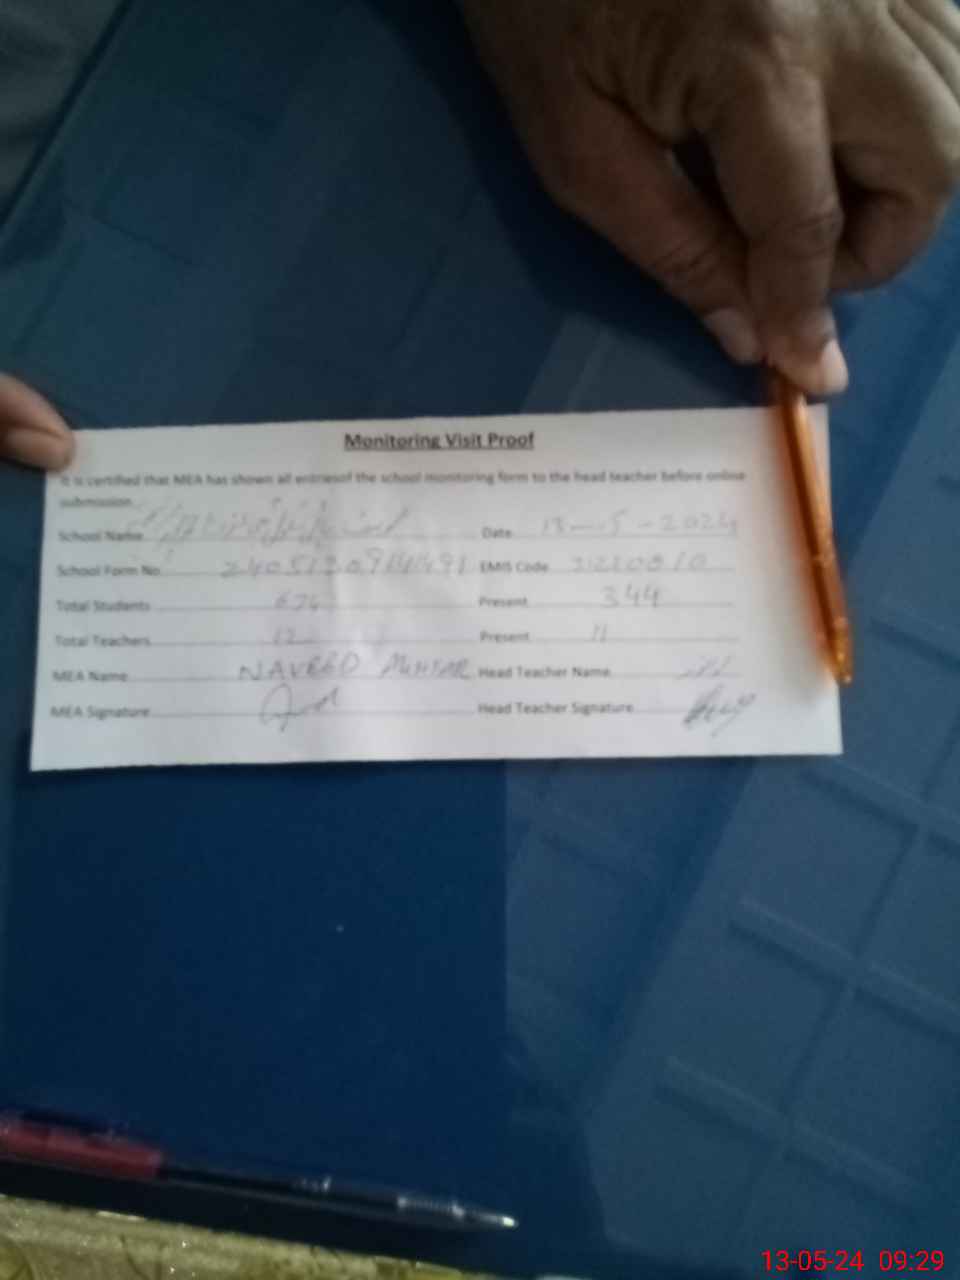 Monitoring Visit Proof
It is certified that MEA has shown all entriesof the school monitoring form to the head teacher before online
submission
School Name Date 13-5-2024
School Form No EMIS Code
Total Students Present 344
Total Teachers 12 Present 11
MEA Name NAVEED MUHTAR Head Teacher Name
MEA Signature Head Teacher Signature
13-05-24 09:29